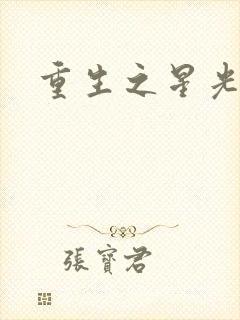 重生之星光
張寶君